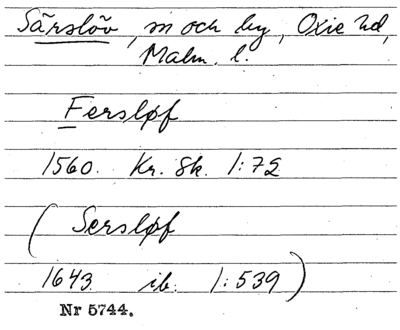 Särslöv, sn och by, Oxie hd,
Malm. l.
Fersløf
1560. Kr. Sk. 1:72
( Sersløf
1643. ib. 1:539)
Nr 5744.